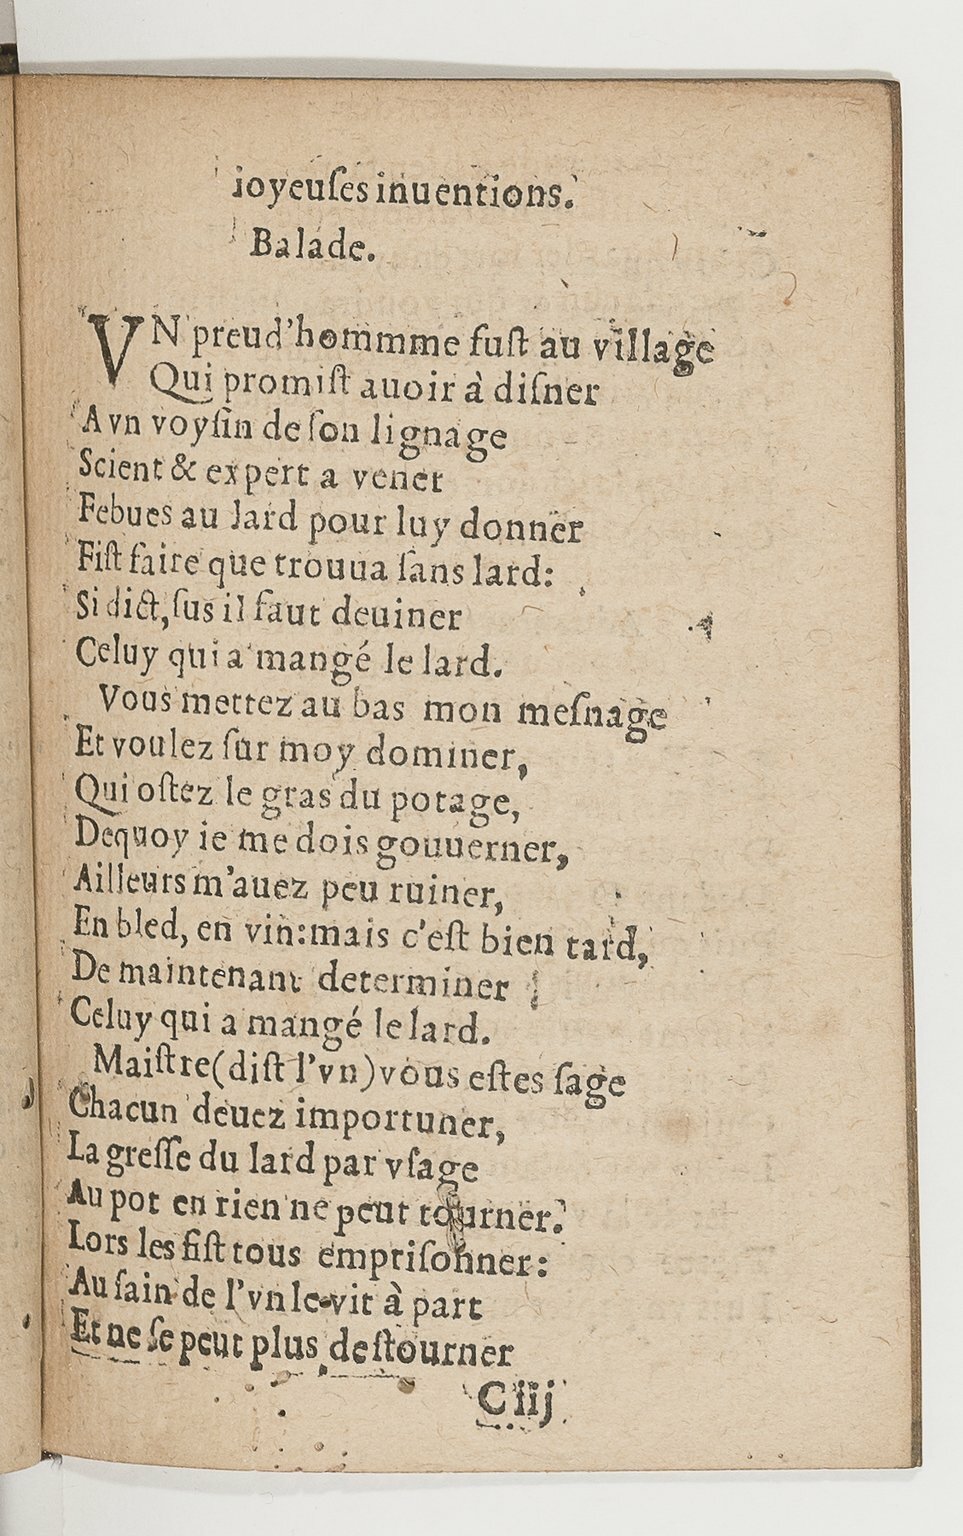 ioyeuſes inuentions.
Balade.
VN preud'hommme fuſt au village
Qui promiſt auoir à diſner
A vn voyſin de ſon lignage
Scient & expert a vener
Febues au lard pour luy donner
Fiſt faire que trouua ſans lard:
Si dict, ſus il faut deuiner
Celuy qui a mangé le lard.
Vous mettez au bas mon meſnage
Et voulez ſur moy dominer,
Qui oſtez le gras du potage,
Dequoy ie me dois gouuerner,
Ailleurs m'auez peu ruiner,
En bled, en vin: mais c'eſt bien tard,
De maintenant determiner
Celuy qui a mangé le lard.
Maiſtre (diſt l'vn) vous eſtes ſage
Chacun deuez importuner,
La greſſe du lard par vſage
Au pot en rien ne peut tourner.
Lors les fiſt tous empriſonner:
Au ſain de l'vn le vit à part
Et ne ſe peut plus deſtourner
C iij